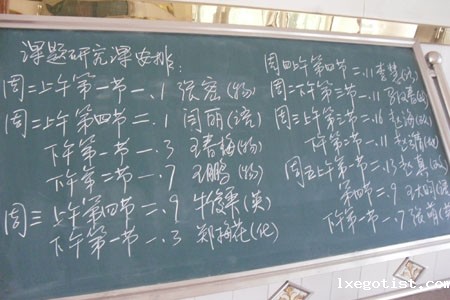 课题研究课安排:
周二上午第一节一.1 张宏(物)
周二上午第四节二.1 闫丽(语)
下午第一节一.3 王春梅(物)
下午第二节一.7 王鹏(物)
周三上午第四节二.9 牛俊秉(英)
下午第一节一.3 郑梅花(化)
周四上午第四节二.11 李慧
周二下午第三节一.11
周三上午第二节二.16
下午第二节一.11
周五上午第三节二.13 赵真
第四节二.9
下午第一节一.7 张萌(英)
lxegotist.com